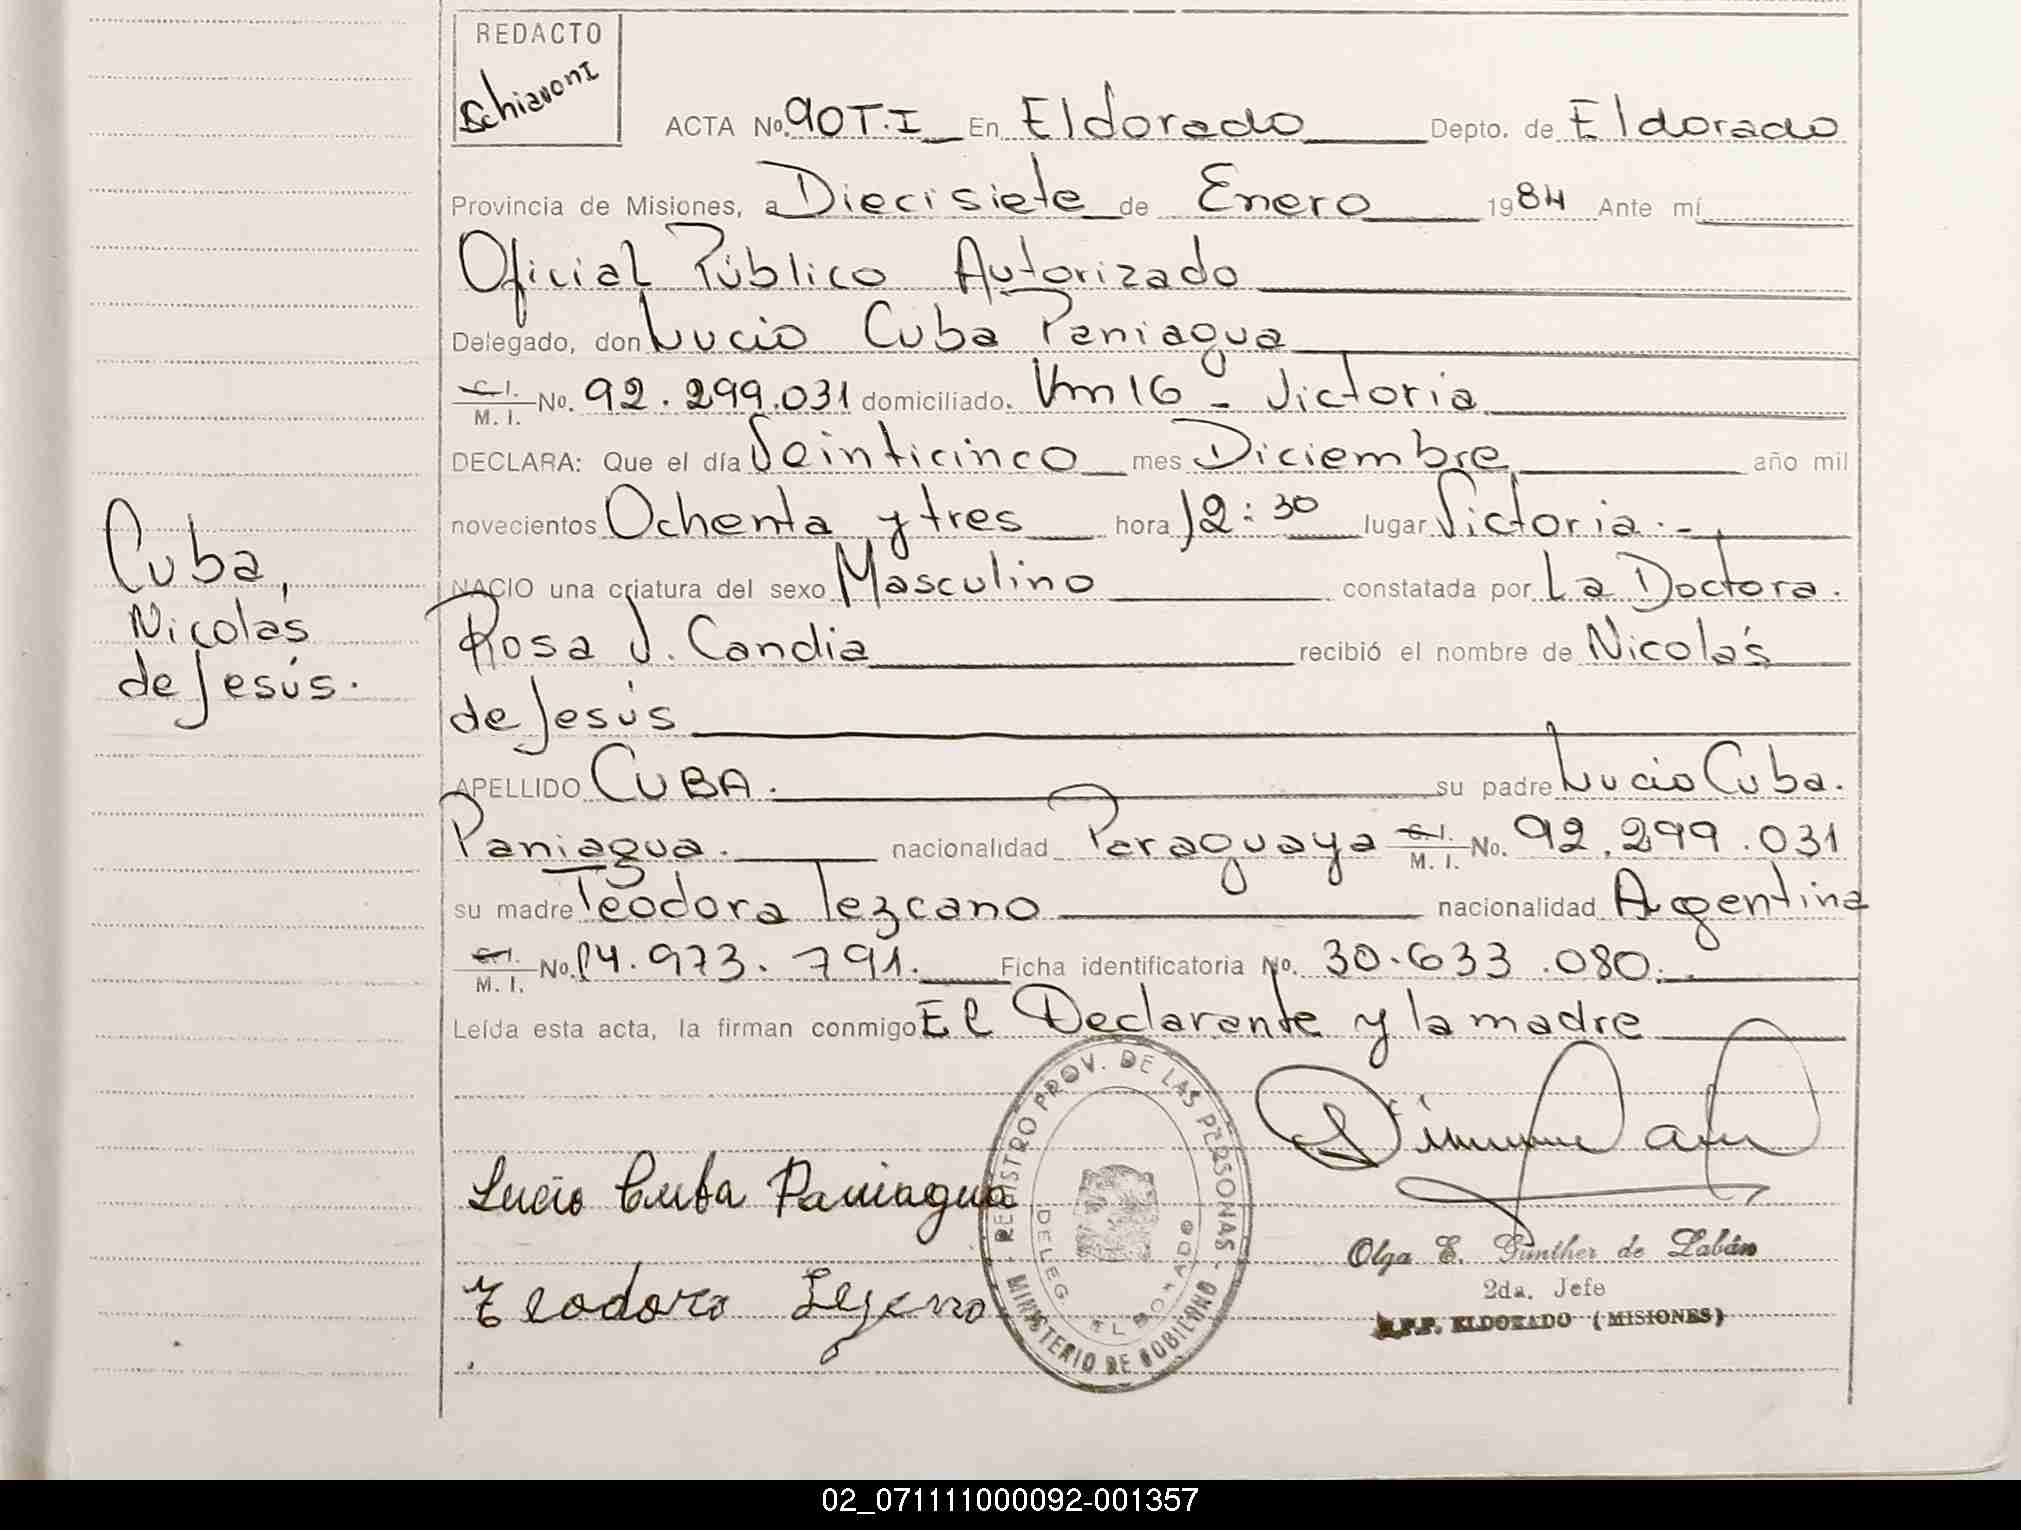 REDACTO
Schiavoni
ACTA No. 90 T.I En Eldorado Depto. de Eldorado
Provincia de Misiones, a Diecisiete de Enero 1984 Ante mí
Oficial Público Autorizado
Delegado, don Lucio Cuba Paniagua
C. I. / M. I. No. 92.299.031 domiciliado. Km 16 - Victoria
DECLARA: Que el día Veinticinco mes Diciembre año mil
novecientos Ochenta y tres hora 12:30 lugar Victoria.-
NACIO una criatura del sexo Masculino constatada por La Doctora.
Rosa J. Candia recibió el nombre de Nicolás
de Jesús
APELLIDO CUBA. su padre Lucio Cuba.
Paniagua. nacionalidad Paraguaya C. I. / M. I. No. 92.299.031
su madre Teodora Lezcano nacionalidad Argentina
C. I. / M. I. No. 14.973.791. Ficha identificatoria No. 30.633.080.
Leída esta acta, la firman conmigo El Declarante y la madre
Cuba,
Nicolás
de Jesús.
Lucio Cuba Paniagua
Teodora
REGISTRO PROV. DE LAS PERSONAS - MINISTERIO DE GOBIERNO -
DELEG. ELDORADO
Olga E. Günther de Labán
2da. Jefe
R.P.P. ELDORADO (MISIONES)
02_071111000092-001357